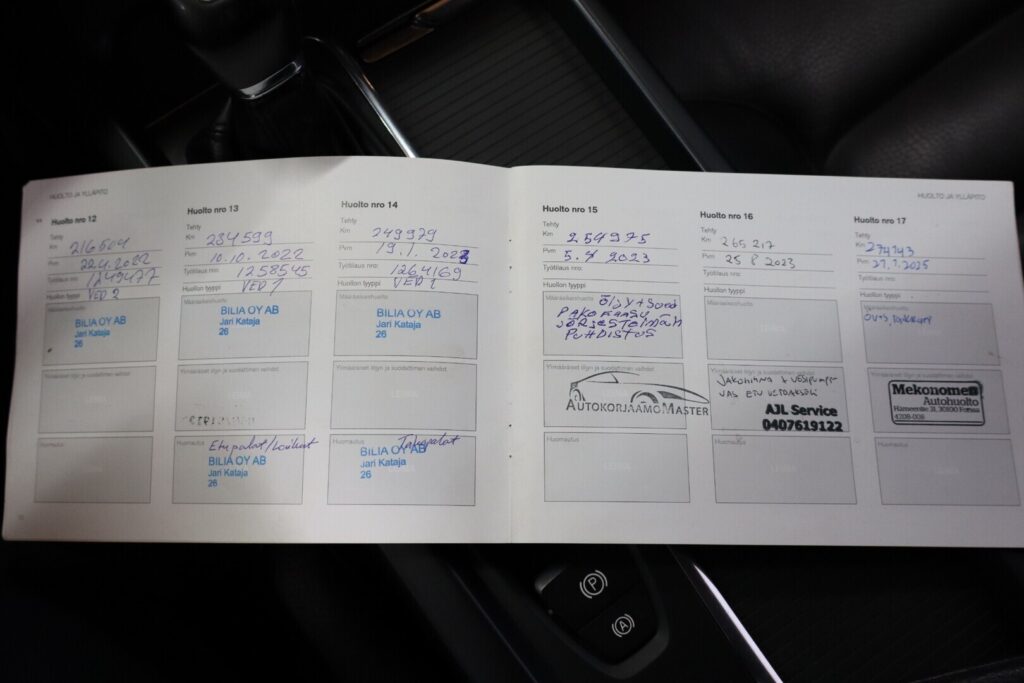 HUOLTO JA YLLÄPITO
Huolto nro 12
Tehty
Km 216504
Pvm 22.4.2022
Työtilaus nro: 1249477
Huollon tyyppi
VED 2
Määräaikaishuolto
BILIA OY AB
Jari Kataja
26
Ylimääräiset öljyn ja suodattimen vaihdot
Huomautus
Huolto nro 13
Tehty
Km 234599
Pvm 10.10.2022
Työtilaus nro: 1258545
Huollon tyyppi VED 1
Määräaikaishuolto
BILIA OY AB
Jari Kataja
26
Ylimääräiset öljyn ja suodattimen vaihdot
Huomautus Etupalat/
BILIA OY AB
Jari Kataja
26
Huolto nro 14
Tehty
Km 249979
Pvm 19.1. 2023
Työtilaus nro: 1264169
Huollon tyyppi VED 1
Määräaikaishuolto
BILIA OY AB
Jari Kataja
26
Ylimääräiset öljyn ja suodattimen vaihdot
Huomautus Takapalat
BILIA OY AB
Jari Kataja
26
HUOLTO JA YLLÄPITO
Huolto nro 15
Tehty
Km 254975
Pvm 5.4 2023
Työtilaus nro:
Huollon tyyppi
Määräaikaishuolto
ÖljY + Suod
PAKOKAASU
JÄRJESTELMÄN
PUHDISTUS
Ylimääräiset öljyn ja suodattimen vaihdot
AUTOKORJAAMOMASTER
Huomautus
Huolto nro 16
Tehty
Km 265 217
Pvm 25 8 2023
Työtilaus nro:
Huollon tyyppi
Määräaikaishuolto
Ylimääräiset öljyn ja suodattimen vaihdot
JAKOHIHNA + VESIPUMPPU
VAS ETU VETOAKSELI
AJL Service
0407619122
Huomautus
Huolto nro 17
Tehty
Km 274743
Pvm 27.7.2025
Työtilaus nro:
Huollon tyyppi
Määräaikaishuolto
Ylimääräiset öljyn ja suodattimen vaihdot
Mekonomen
Autohuolto
Hämeentie 31, 30100 Forssa
Huomautus